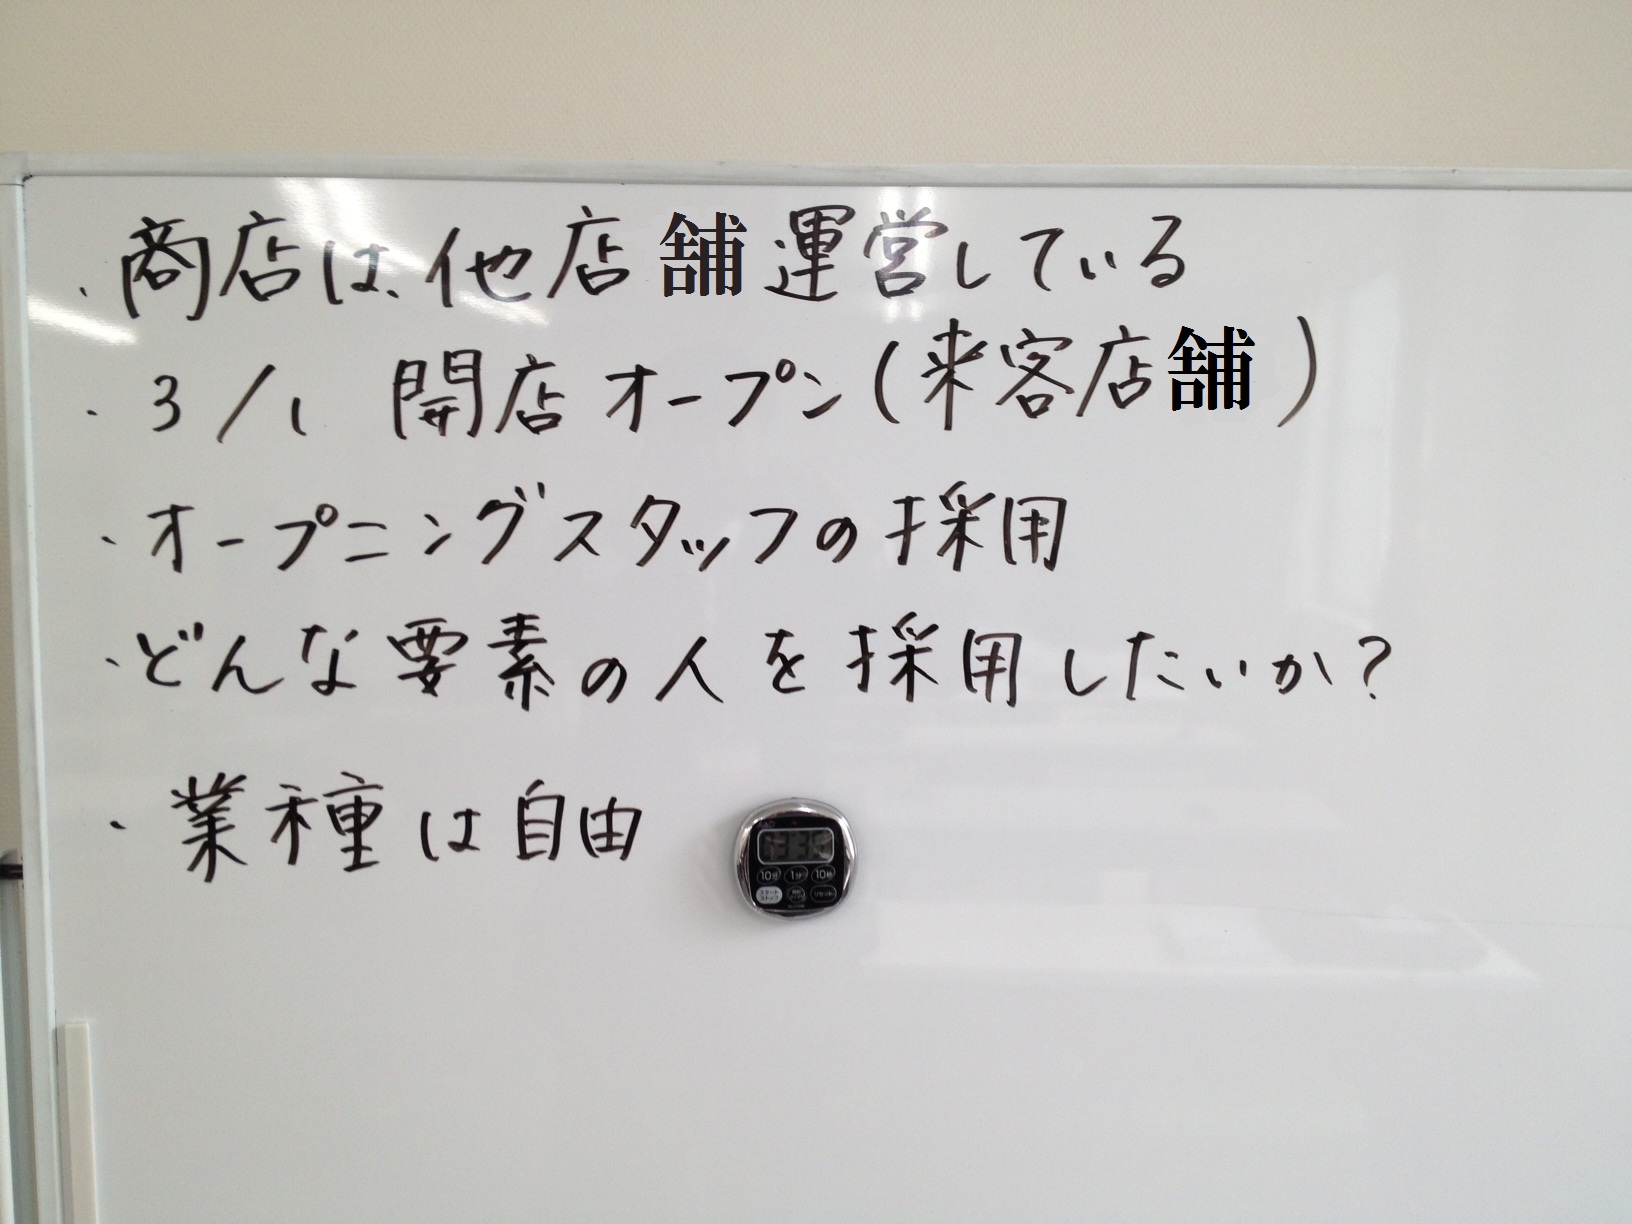 ・商店は、他店舗運営している
・3/1 開店オープン(来客店舗)
・オープニングスタッフの採用
・どんな要素の人を採用したいか?
・業種は自由
10分 1分 10秒
スタート ストップ リセット